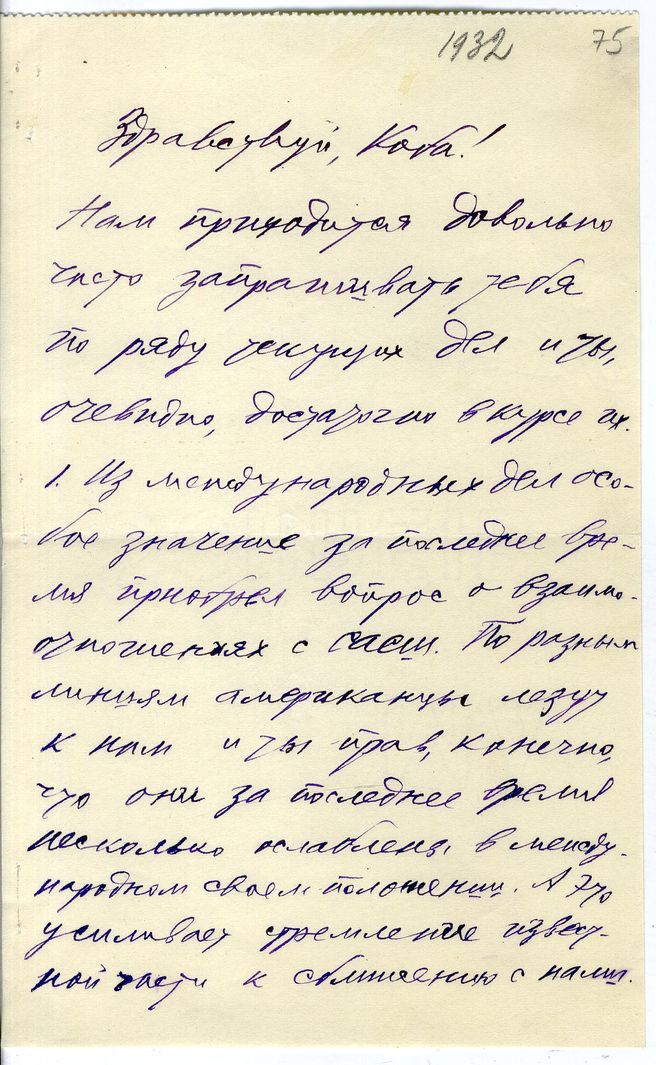 1932 75
Здравствуй, Коба!
Нам приходится довольно
часто запрашивать тебя
по ряду текущих дел и ты,
очевидно, достаточно в курсе их.
1. Из международных дел осо-
бое значение за последнее вре-
мя приобрел вопрос о взаимо-
отношениях с САСШ. По разным
линиям американцы лезут
к нам и ты прав, конечно,
что они за последнее время
несколько ослаблены в между-
народном своем положении. А это
усиливает стремление извест-
ной части к сближению с нами.